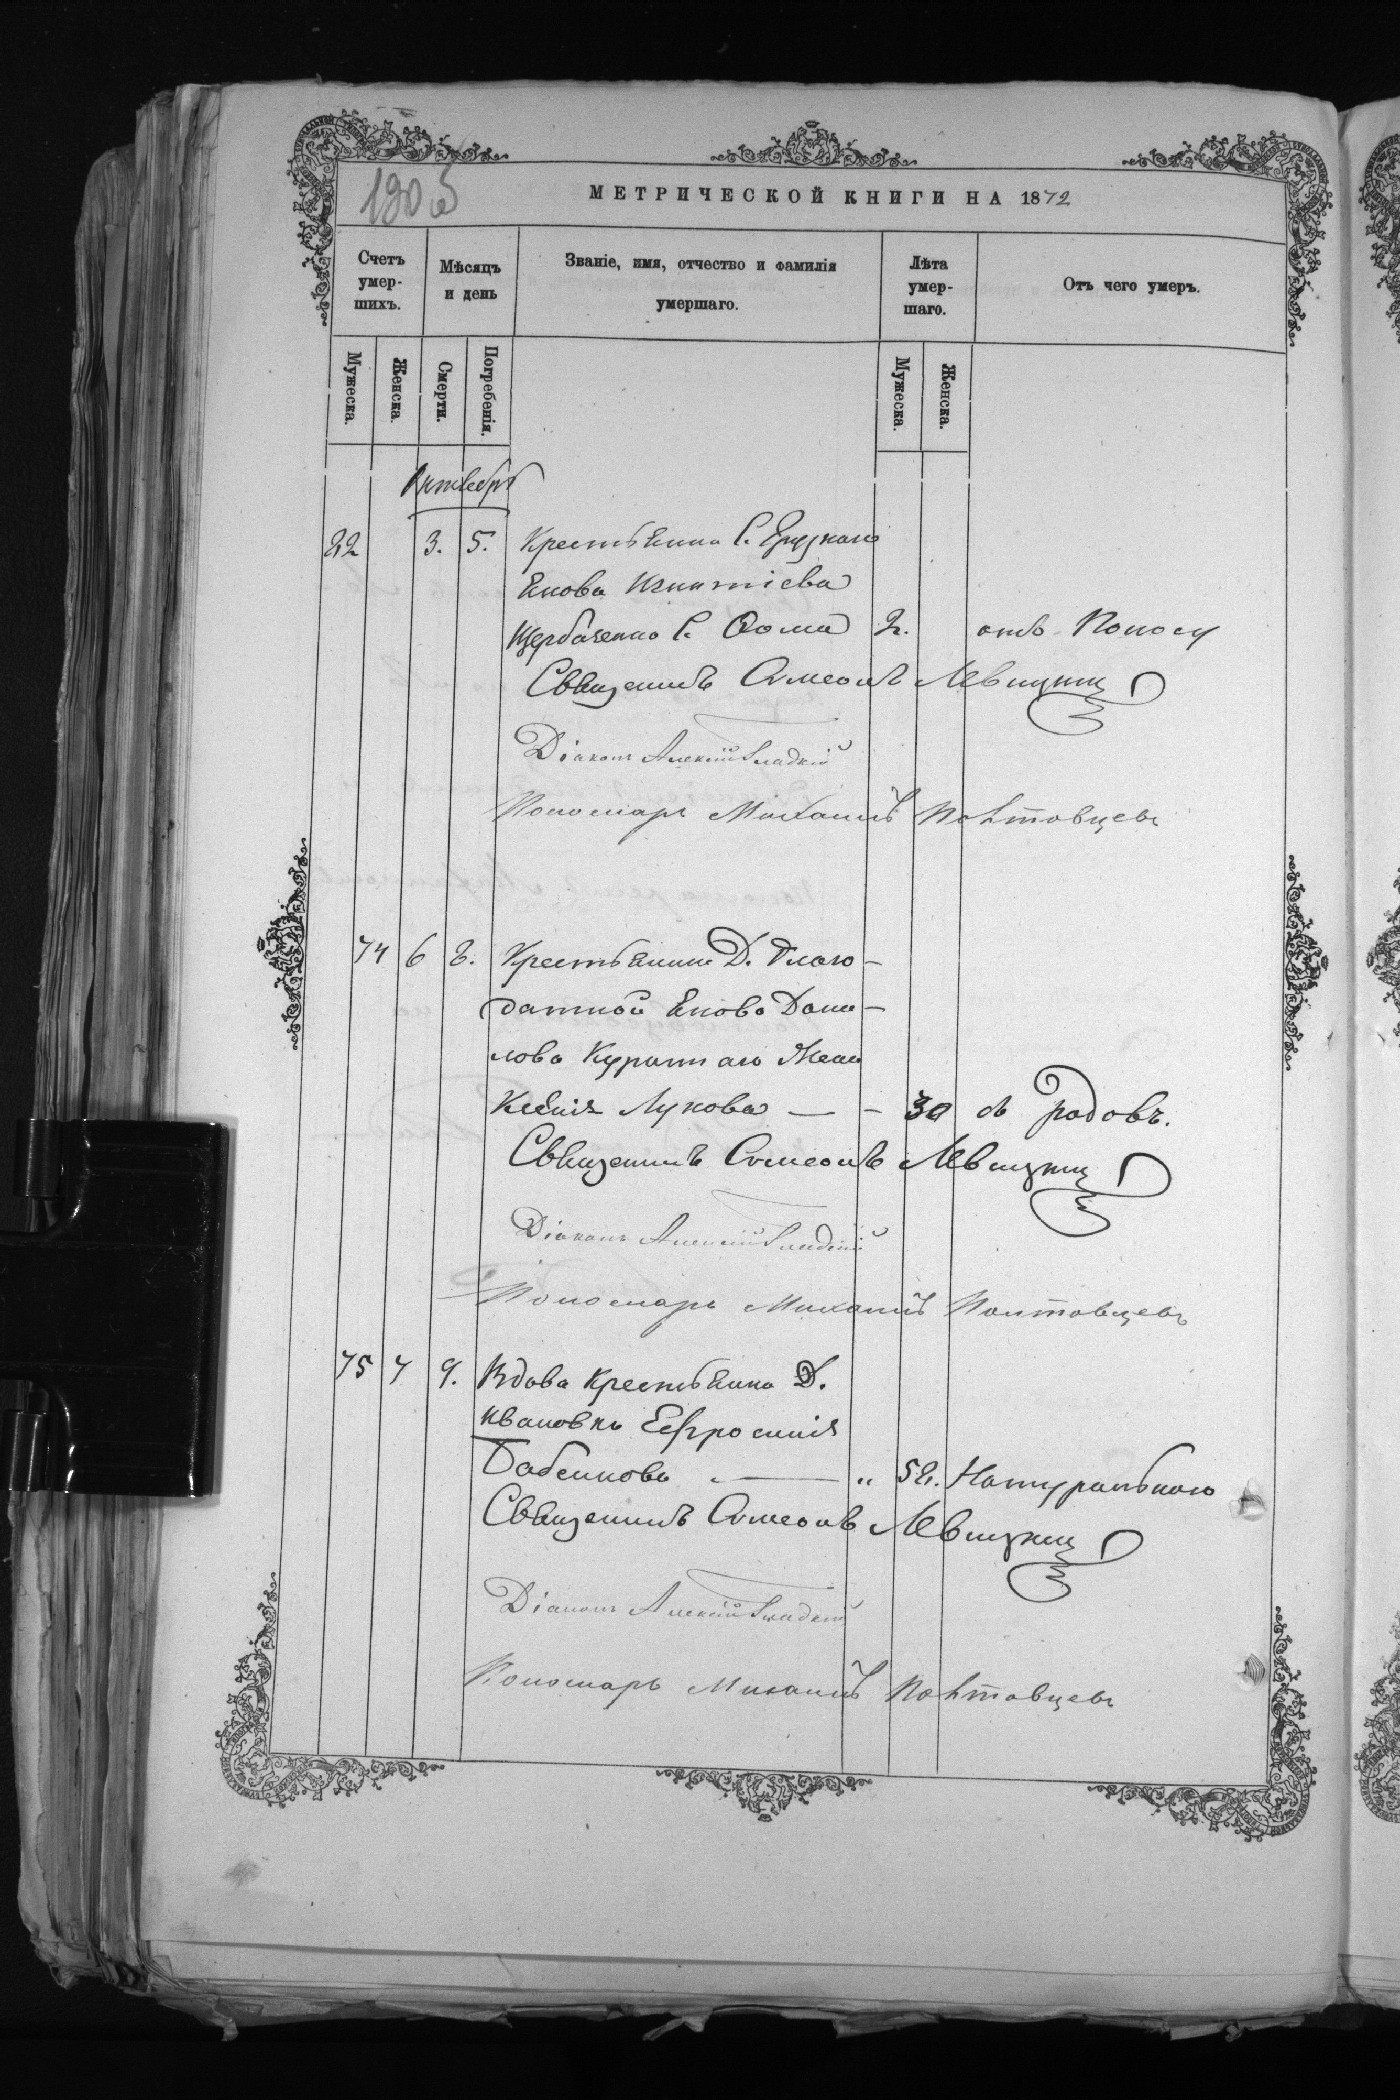 190 об
МЕТРИЧЕСКОЙ КНИГИ НА 1872
Счетъ умер- шихъ.
Мѣсяцъ и день
Званіе, имя, отчество и фамилія умершаго.
Лѣта умер- шаго.
Отъ чего умеръ.
Мужеска.
Женска.
Смерти.
Погребенія.
Мужеска.
Женска.
Октябрь
22 3. 5. Крестьянина С.
Якова Игнатіева
Щербаченко С. Ѳома 2. отъ Поносу
Священникъ Симеонъ Левицкий
Діаконъ Алексій Гладкій
Пономарь Михаилъ Полтавцевъ
74 6 8. Крестьянина Д. Благо-
датной Якова Дани-
лова жена
Ксенія Лукова — - 30 съ родовъ.
Священникъ Симеонъ Левицкий
Діаконъ Алексій Гладкій
Пономарь Михаилъ Полтавцевъ
75 7 9. Вдова Крестьянина Д.
Ивановки Ефросинія
Бабенкова — „ Натуральною
Священникъ Симеонъ Левицкий
Діаконъ Алексій Гладкій
Пономарь Михаилъ Полтавцевъ